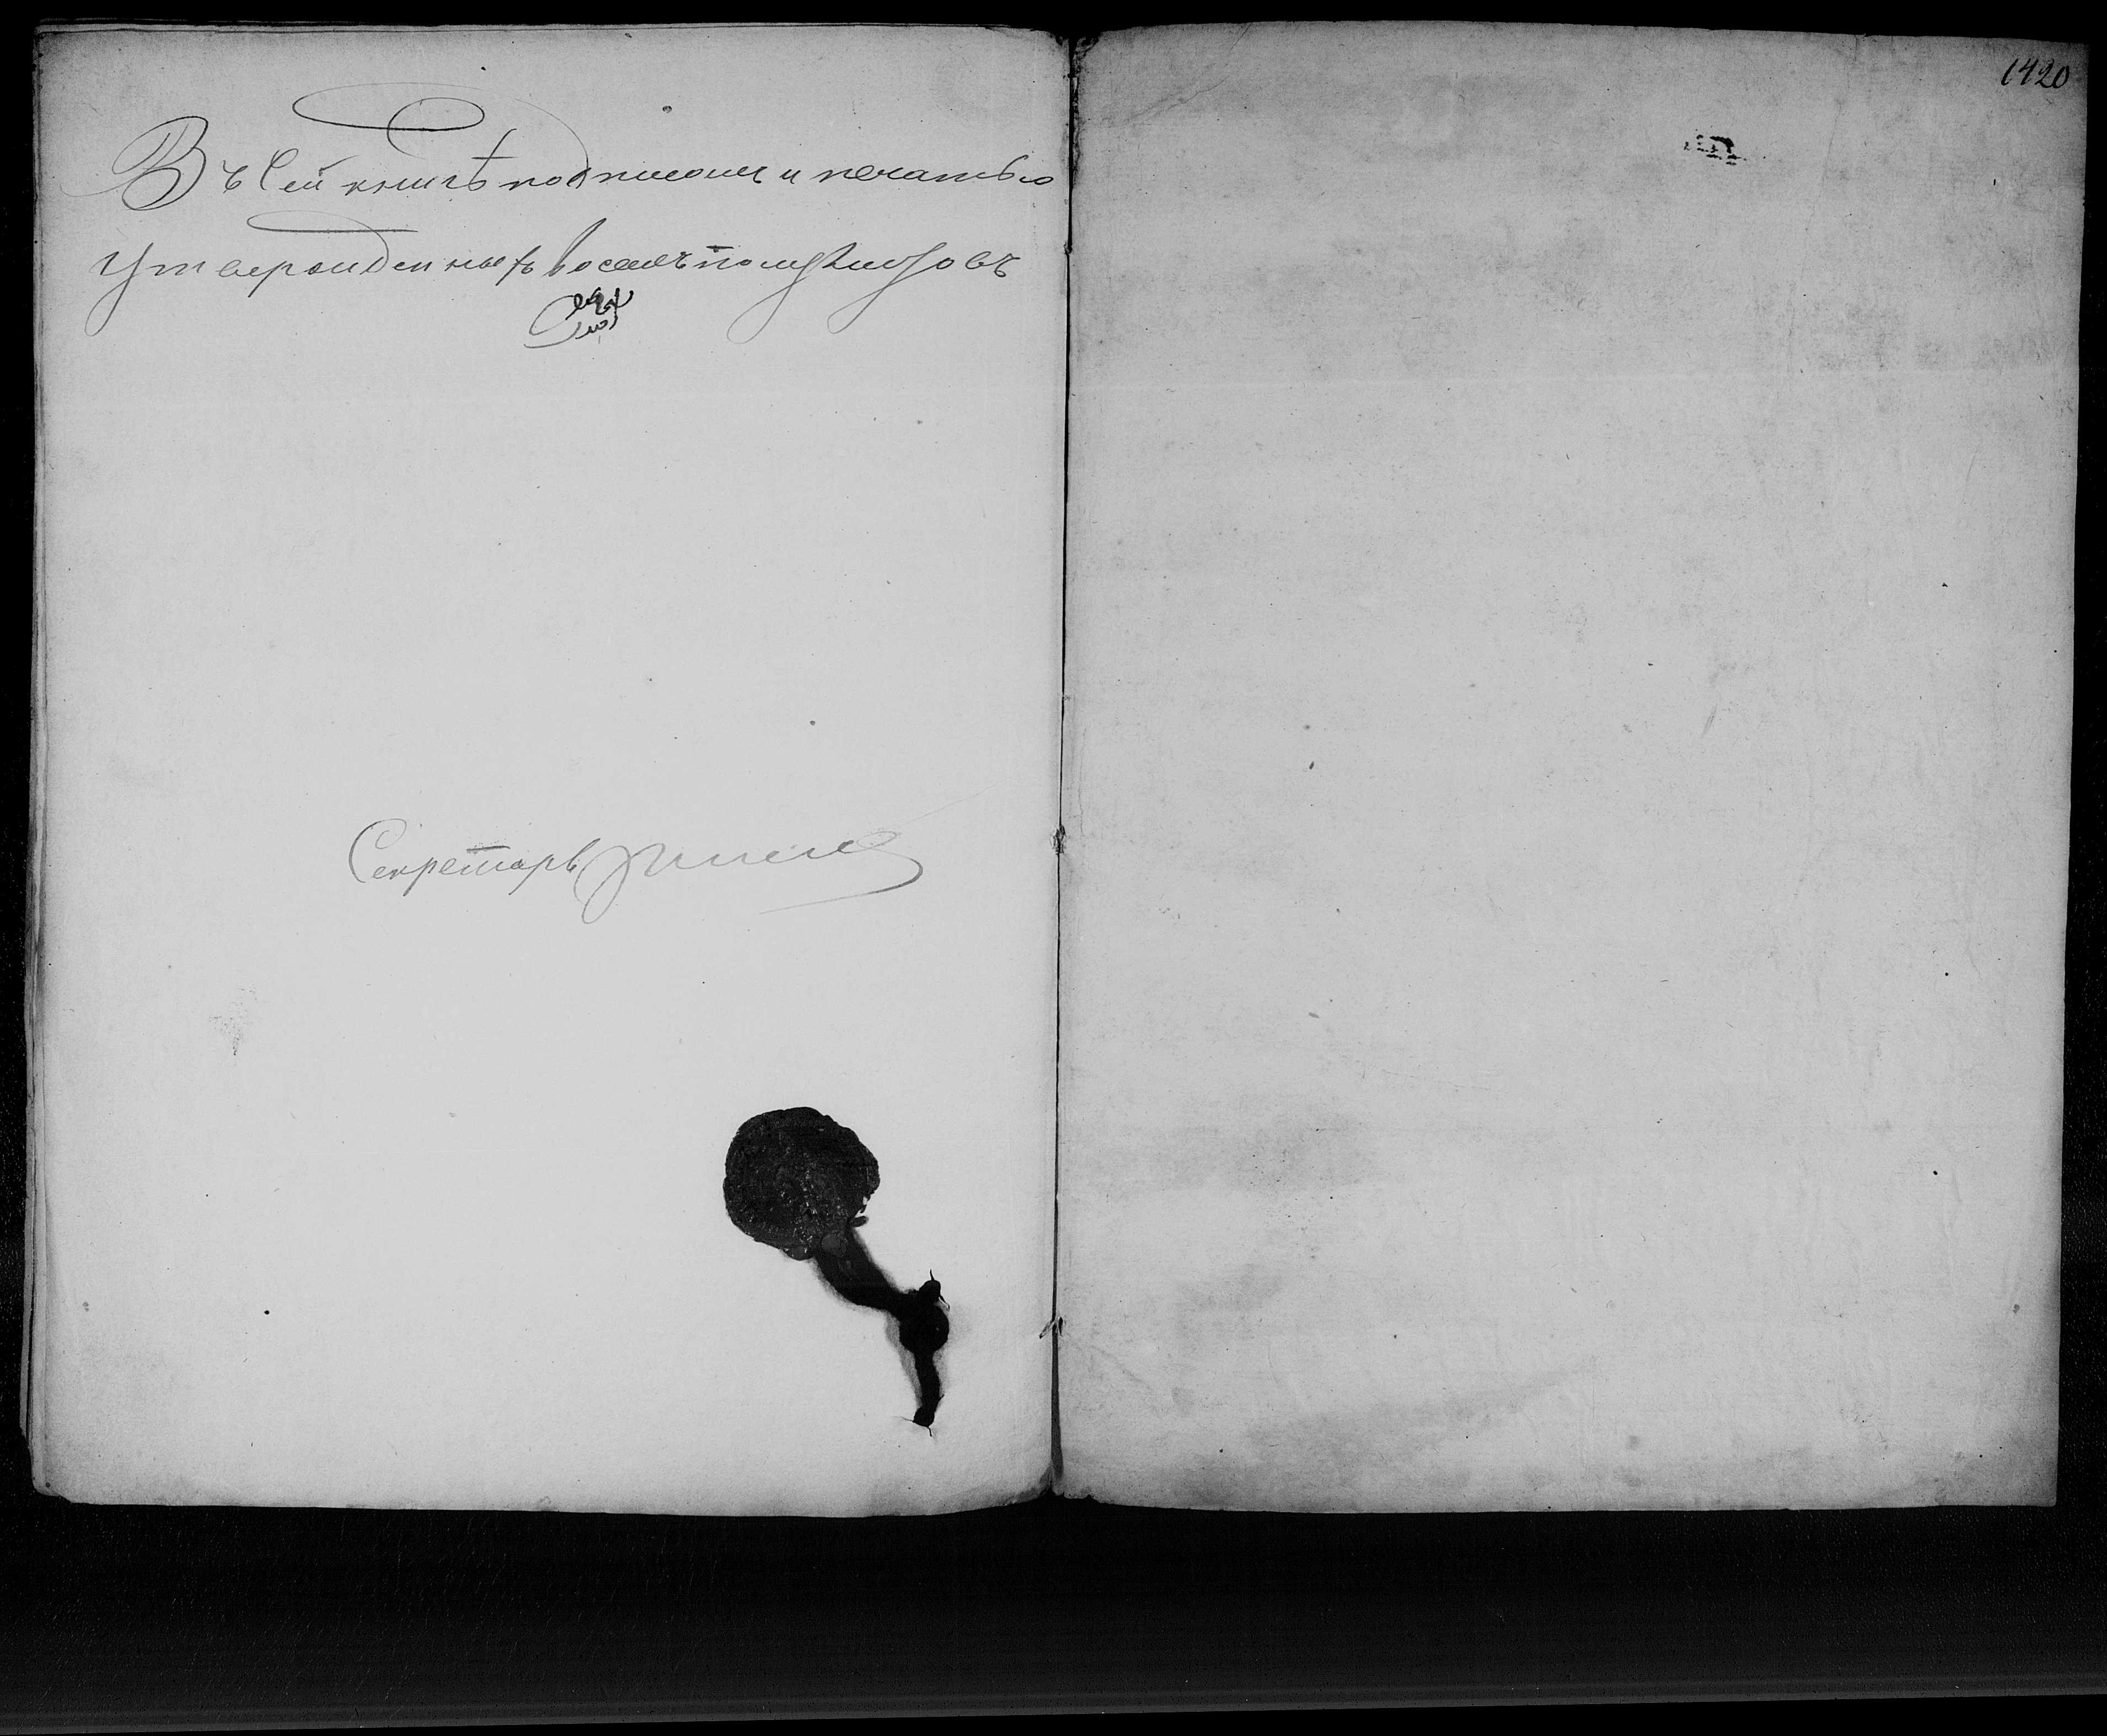 Въ Сей книгѣ подписомъ и печатью
утвержденныхъ восемь полулистовъ
Секретарь
1420